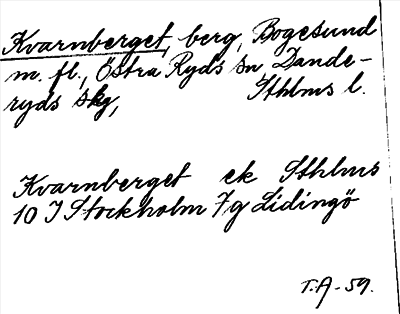 Kvarnberget, berg, Bogesund
m. fl., Östra Ryds sn Dande-
ryds skg, Sthlms l.
Kvarnberget ek Sthlms
10 I Stockholm 7g Lidingö
T.A-59.